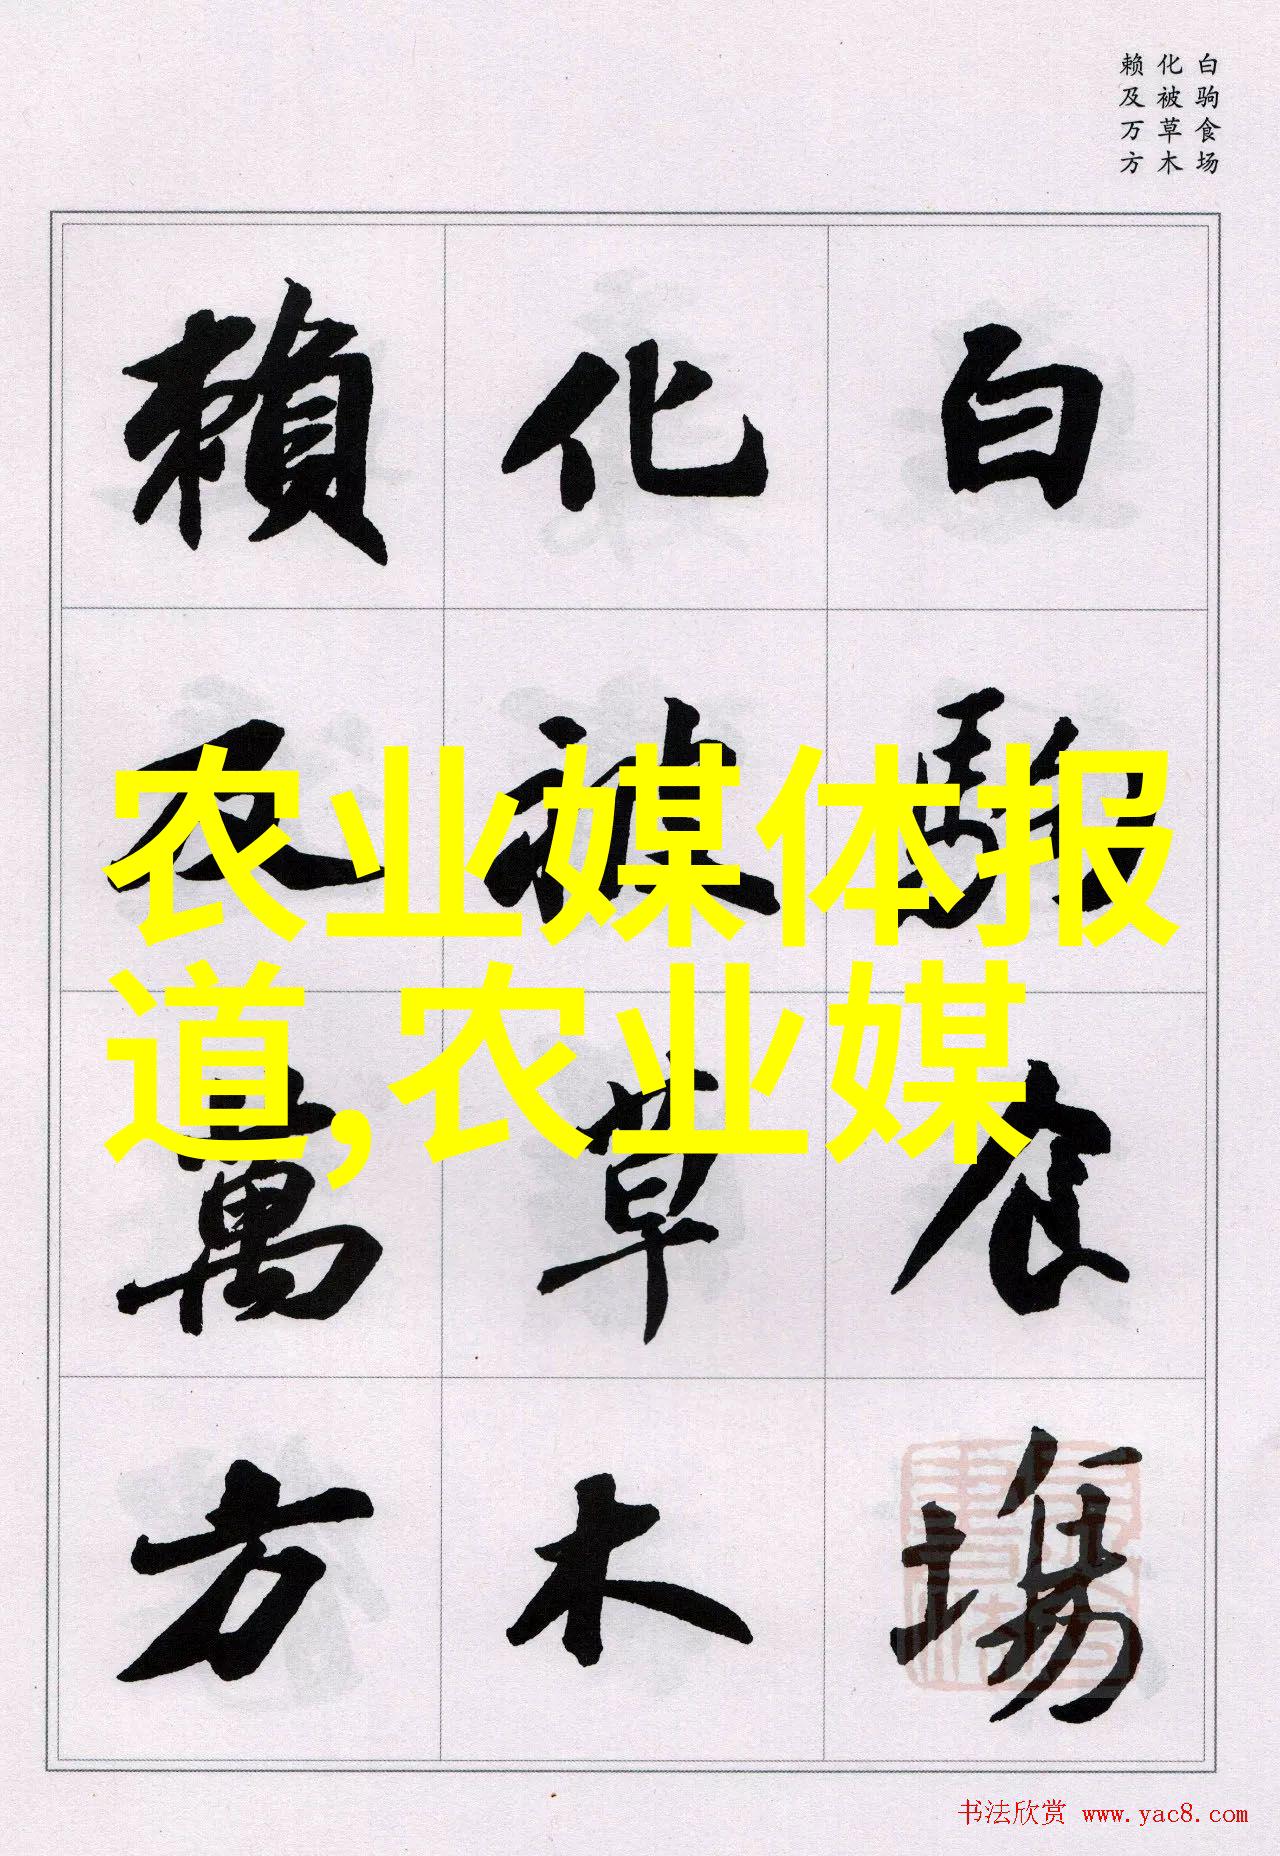 白驹食场
化被草木
赖及万方
白駒食場
化被草木
賴及萬方
农业媒体报
道,农业媒
书法欣赏 www.yac8.com